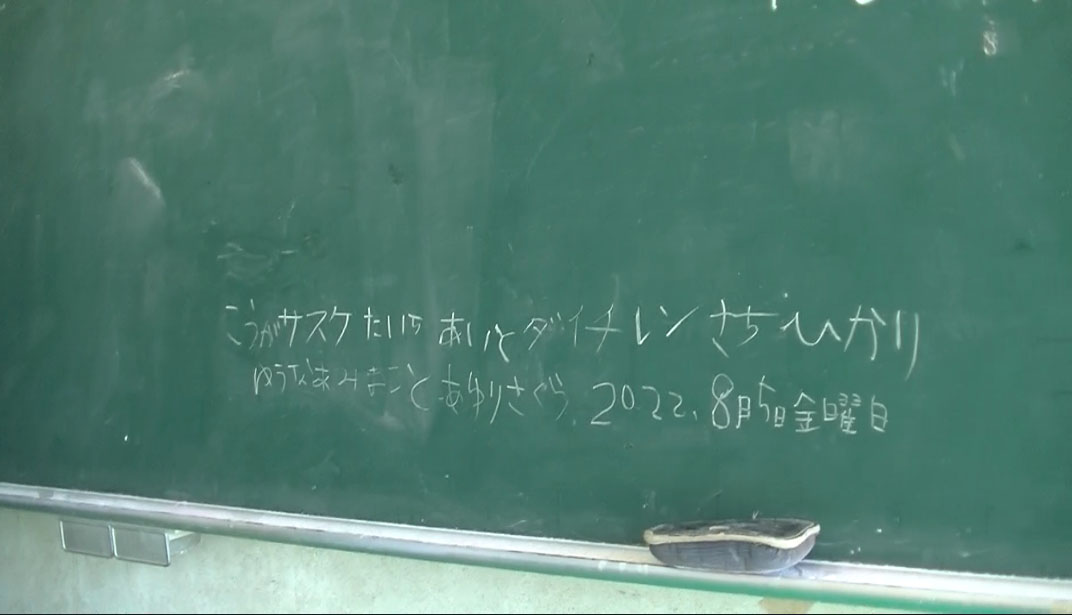 こうがサスケたいち あいと ダイチ レン さち ひかり
ゆうなあみまこと あゆりさくら、2022、8月5日金曜日